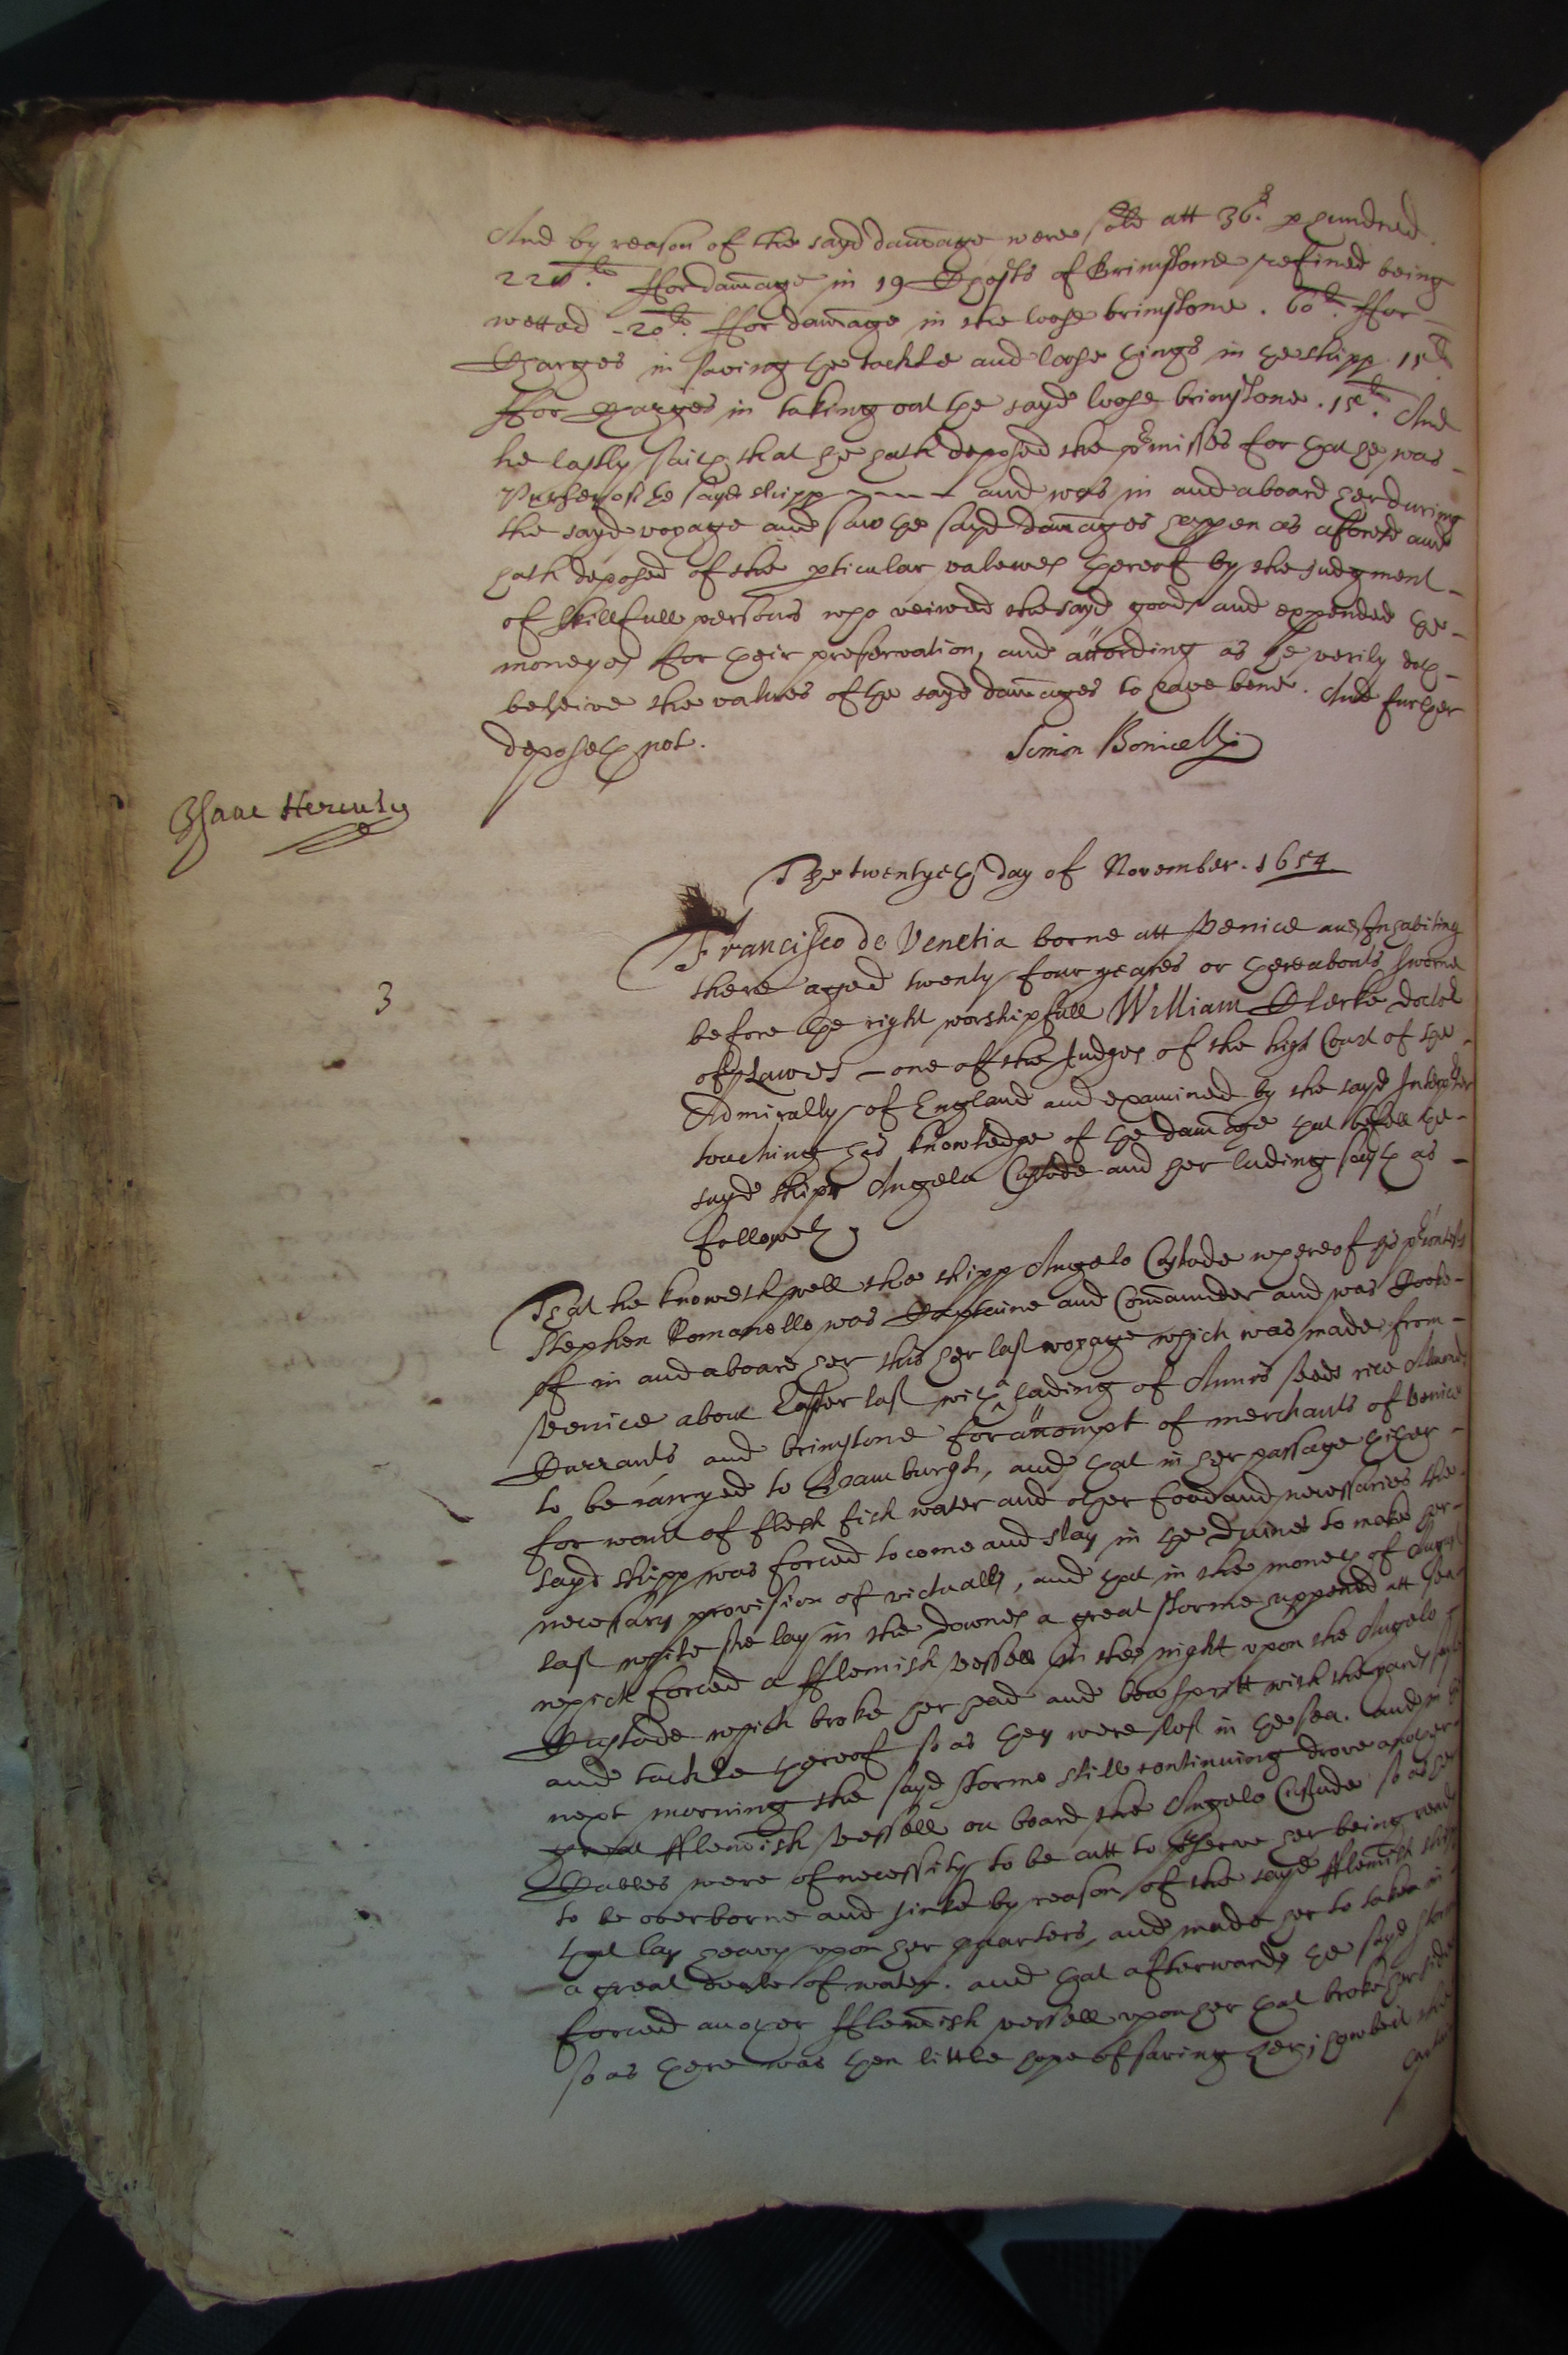 And by reason of the sayd dam̄age were sold att 36s p hundred.
220li. ffor dam̄age in 19 Chests of Brimstone refined being
wetted - 20li ffor dam̄age in the loose brimstone. 60li. ffor -
Charges in saving the tackle and loose things in the shipp 15li
ffor Charges in taking out the sayd loose brimstone. 15li. And
he lastly saith that he hath deposed the prmisses for that he was -
Purser of the sayd shipp ---- and was in and aboard her during
the sayd voyage and saw the sayd dam̄ages happen as aforesd and
hath deposed of the pticular valewes thereof by the judgment -
of skillfull persons who veiwed the sayd goods and expended the -
moneyes for their preservation, and according as he verily doth -
beleive the values of the sayd dam̄ages to have bene. And further
deposeth not.
Simon Bonicelli
Isaac Hercules
The twentyeth day of November. 1654.
3
Francisco de Venetia borne att Venice and Inhabiting
there aged twenty four yeares or thereabouts sworne
before the right worshipfull William Clerke doctor
of Lawes - one of the Judges of the high Court of the -
Admiralty of England and examined by the sayd Interprter
touching his knowledge of the dam̄age that befell the -
sayd shipp Angelo Custode and her lading sayth as -
followeth
That he knoweth well the shipp Angelo Custode whereof the
Stephen Romanello was Captaine and Com̄aunder and was
of in and aboard her this her last voyage which was made from -
Venice about Easter last with lading of Annis seeds rice Almonds
Currants and brimstone for accompt of merchants of Venice
to be carryed to Hamburgh, and that in her passage thither -
for want of flesh fish water and other food and necessaries the
sayd shipp was forced to come and stay in the Duines to make her -
necessary provision of victualls, and that in the moneth of August
last while she lay in the Downes a great storme happened att sea
which forced a fflemish vessell in the night upon the Angelo -
Custode which broke her head and bowspritt with the yards sayle
and tackle thereof so as they were lost in the sea. and in the
next morning the sayd storme still continuing drove another
great fflemish vessell on board the Angelo Custode so as her
Cables were of necessity to be cutt to pserve her being ready
to be overborne and sinke by reason of the sayd fflemish shipp
that lay heavy upon her quarters, and made her to taken in
a great deale of water. and that afterwards the sayd storme
forced another fflemish vessell upon her that broke her side
so as there was then little hope of saving her; howbeit the